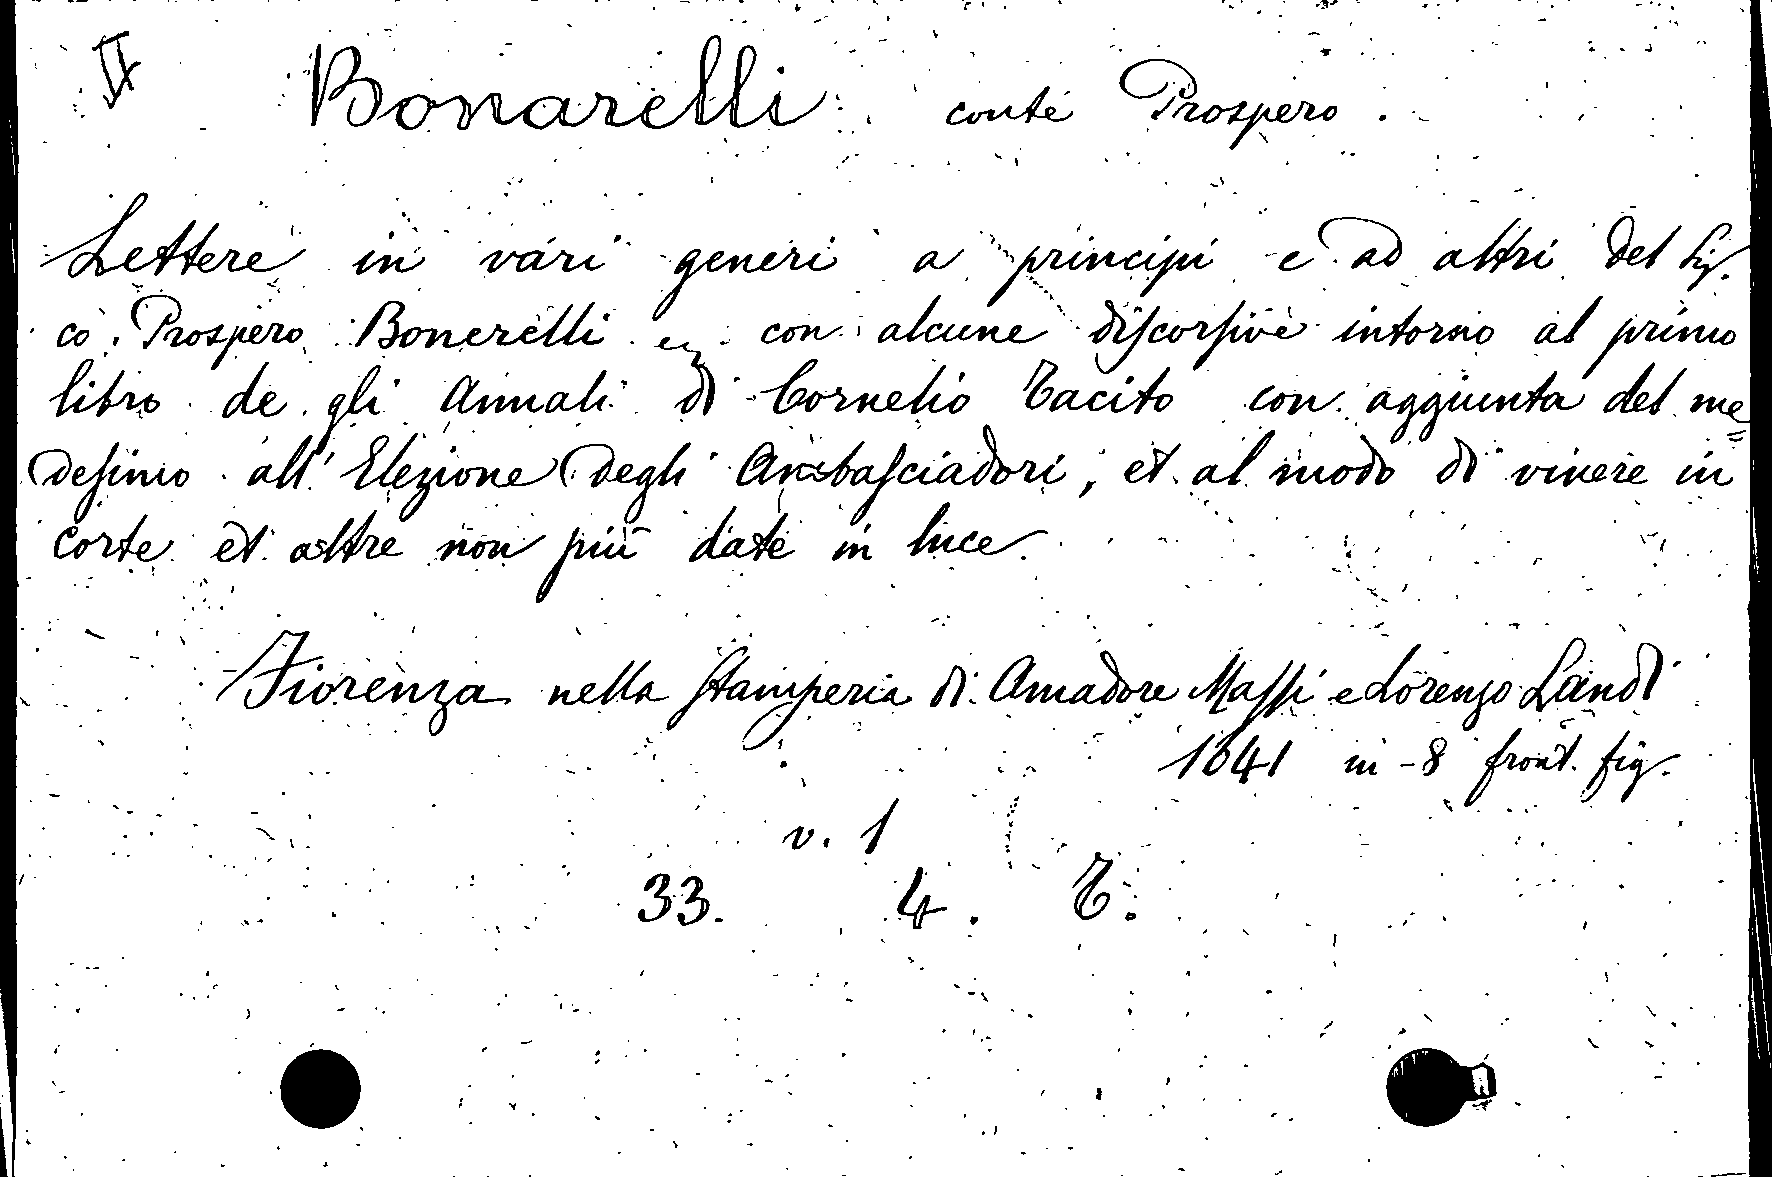 II Bonarelli conte Prospero.
Lettere in vari generi a principi e ad altri del Sig.
co. Prospero Bonerelli con alcune discorsive intorno al primo
libro de gli Annali di Cornelio Tacito con aggiunta del me=
desimo all' Elezione degli Ambasciadori, et al modo di vivere in
corte et altre non più date in luce.
Fiorenza nella Stamperia di Amadore Massi e Lorenzo Landi
1641 in-8 front. fig.
v. 1
33. 4. T.